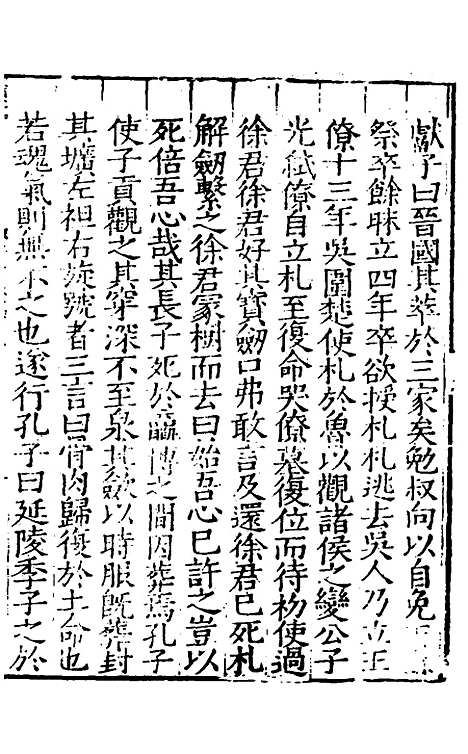 獻子曰晉國其萃於三家矣勉叔向以自免
祭卒餘眛立四年卒欲授札札逃去吳人乃立王
僚十三年吳圍楚使札於魯以觀諸侯之變公子
光弑僚自立札至復命哭僚墓復位而待初使過
徐君徐君好其寶劒口弗敢言及還徐君已死札
解劒繫之徐君冡樹而去曰始吾心已許之豈以
死倍吾心哉其長子死於嬴博之間因葬焉孔子
使子貢觀之其穿深不至泉其歛以時服既葬封
其壙左袒右旋號者三言曰骨肉歸復於土命也
若魂氣則無不之也遂行孔子曰延陵季子之於